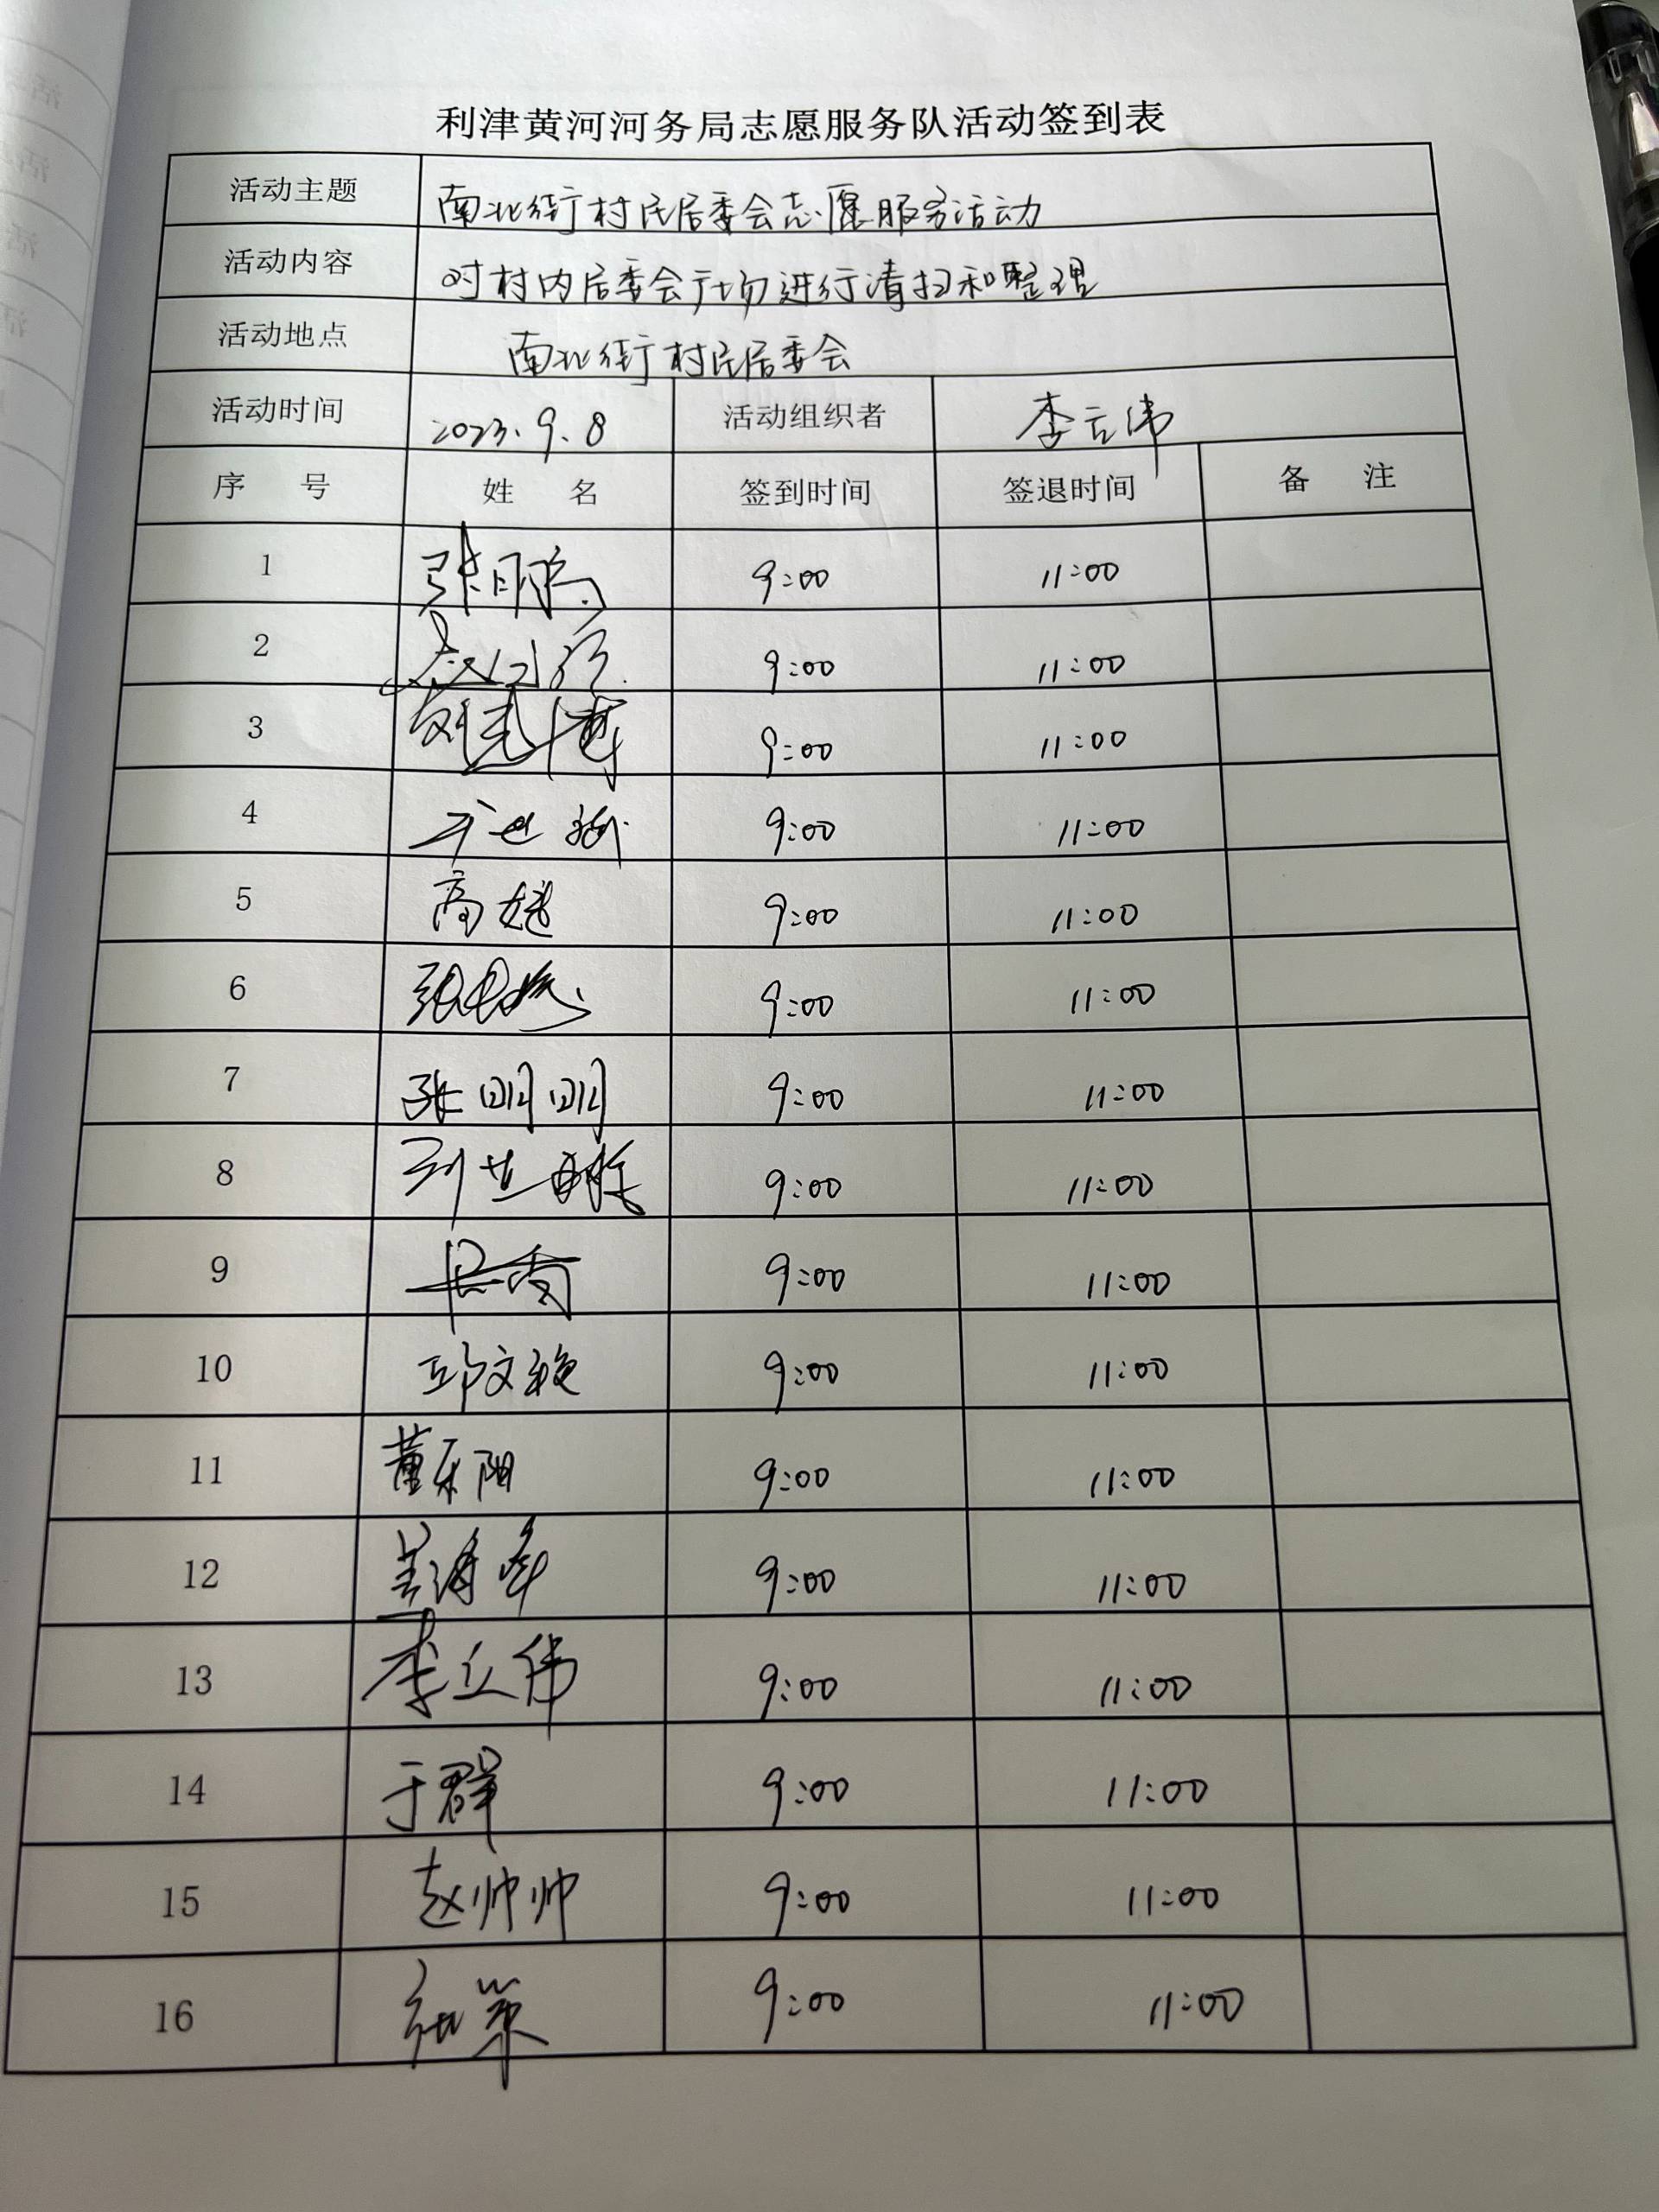 利津黄河河务局志愿服务队活动签到表
活动主题 南北街村民居委会志愿服务活动
活动内容 对村内居委会广场进行清扫和整理
活动地点 南北街村民居委会
活动时间 2023.9.8 活动组织者 李立伟
序号 姓名 签到时间 签退时间 备注
1 9:00 11:00
2 9:00 11:00
3 9:00 11:00
4 9:00 11:00
5 9:00 11:00
6 9:00 11:00
7 张明明 9:00 11:00
8 9:00 11:00
9 9:00 11:00
10 邱文艳 9:00 11:00
11 董乐阳 9:00 11:00
12 9:00 11:00
13 李立伟 9:00 11:00
14 于群 9:00 11:00
15 赵帅帅 9:00 11:00
16 9:00 11:00